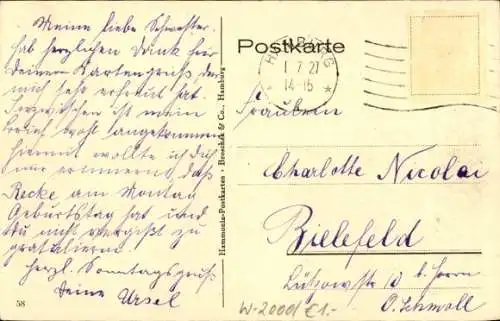 Meine liebe Schwester.
hab herzlichen Dank für
Deinen Kartengruß, der
mich sehr erfreut hat.
Inzwischen ist mein
wohl angekommen
hiermit wollte ich Dich
nur erinnern, daß
Recke am Montag
Geburtstag hat und
Du nicht vergißt zu
gratulieren.
Herzl. Sonntagsgruß
Deine Ursel
58
Hammonia-Postkarten · Boschek & Co., Hamburg
Postkarte
HAMBURG
1 7 21
14-15
Fräulein
Charlotte Nicolai
Bielefeld
Lützowstr b. Herrn
O. Schmoll
W-2000/ €1.-